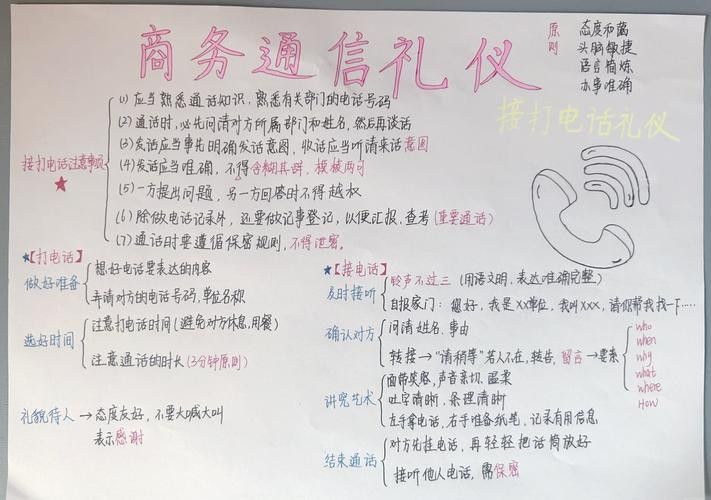 商务通信礼仪
原则
态度和蔼
头脑敏捷
语言简炼
办事准确
接打电话礼仪
接打电话注意事项
(1) 应当熟悉通话知识，熟悉有关部门的电话号码
(2) 通话时，必先问清对方所属部门和姓名，然后再谈话
(3) 发话应当事先明确发话意图，收话应当听清来话意图
(4) 发话应当准确，不得含糊其辞，模棱两可
(5) 一方提出问题，另一方回答时不得越权
(6) 除做电话记录外，还要做记事登记，以便汇报、查考（重要通话）
(7) 通话时要遵循保密规则，不得泄密。
【打电话】
做好准备
想好电话要表达的内容
弄清对方的电话号码，单位名称
选好时间
注意打电话时间（避免对方休息，用餐）
注意通话的时长（3分钟原则）
礼貌待人 → 态度友好，不要大喊大叫
表示感谢
【接电话】
及时接听
铃声不过三（用语文明，表达准确完整）
自报家门：您好，我是XX单位，我叫XXX，请你帮我找一下……
确认对方
问清姓名、事由
转接→“请稍等”若人不在，转告，留言→要素
who
when
why
what
where
How
讲究艺术
面带笑容，声音亲切、温柔
吐字清晰，条理清晰
左手拿电话，右手准备纸笔，记录有用信息
结束通话
对方先挂电话，再轻轻把话筒放好
接听他人电话，需保密